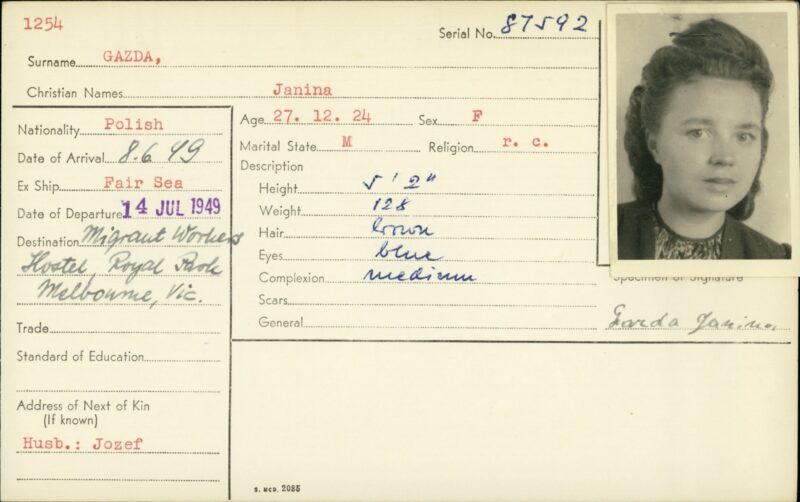 1254
Serial No. 87592
Surname GAZDA,
Christian Names Janina
Nationality Polish
Date of Arrival 8.6.49
Ex Ship Fair Sea
Date of Departure 14 JUL 1949
Destination Migrant Workers
Hostel, Royal Park
Melbourne, Vic.
Trade
Standard of Education
Address of Next of Kin
(If known)
Husb.: Jozef
Age 27. 12. 24 Sex F
Marital State M Religion r. c.
Description
Height 5' 2"
Weight 128
Hair brown
Eyes blue
Complexion medium
Scars
General
Specimen of Signature
Gazda Janina
S. MCD. 2085